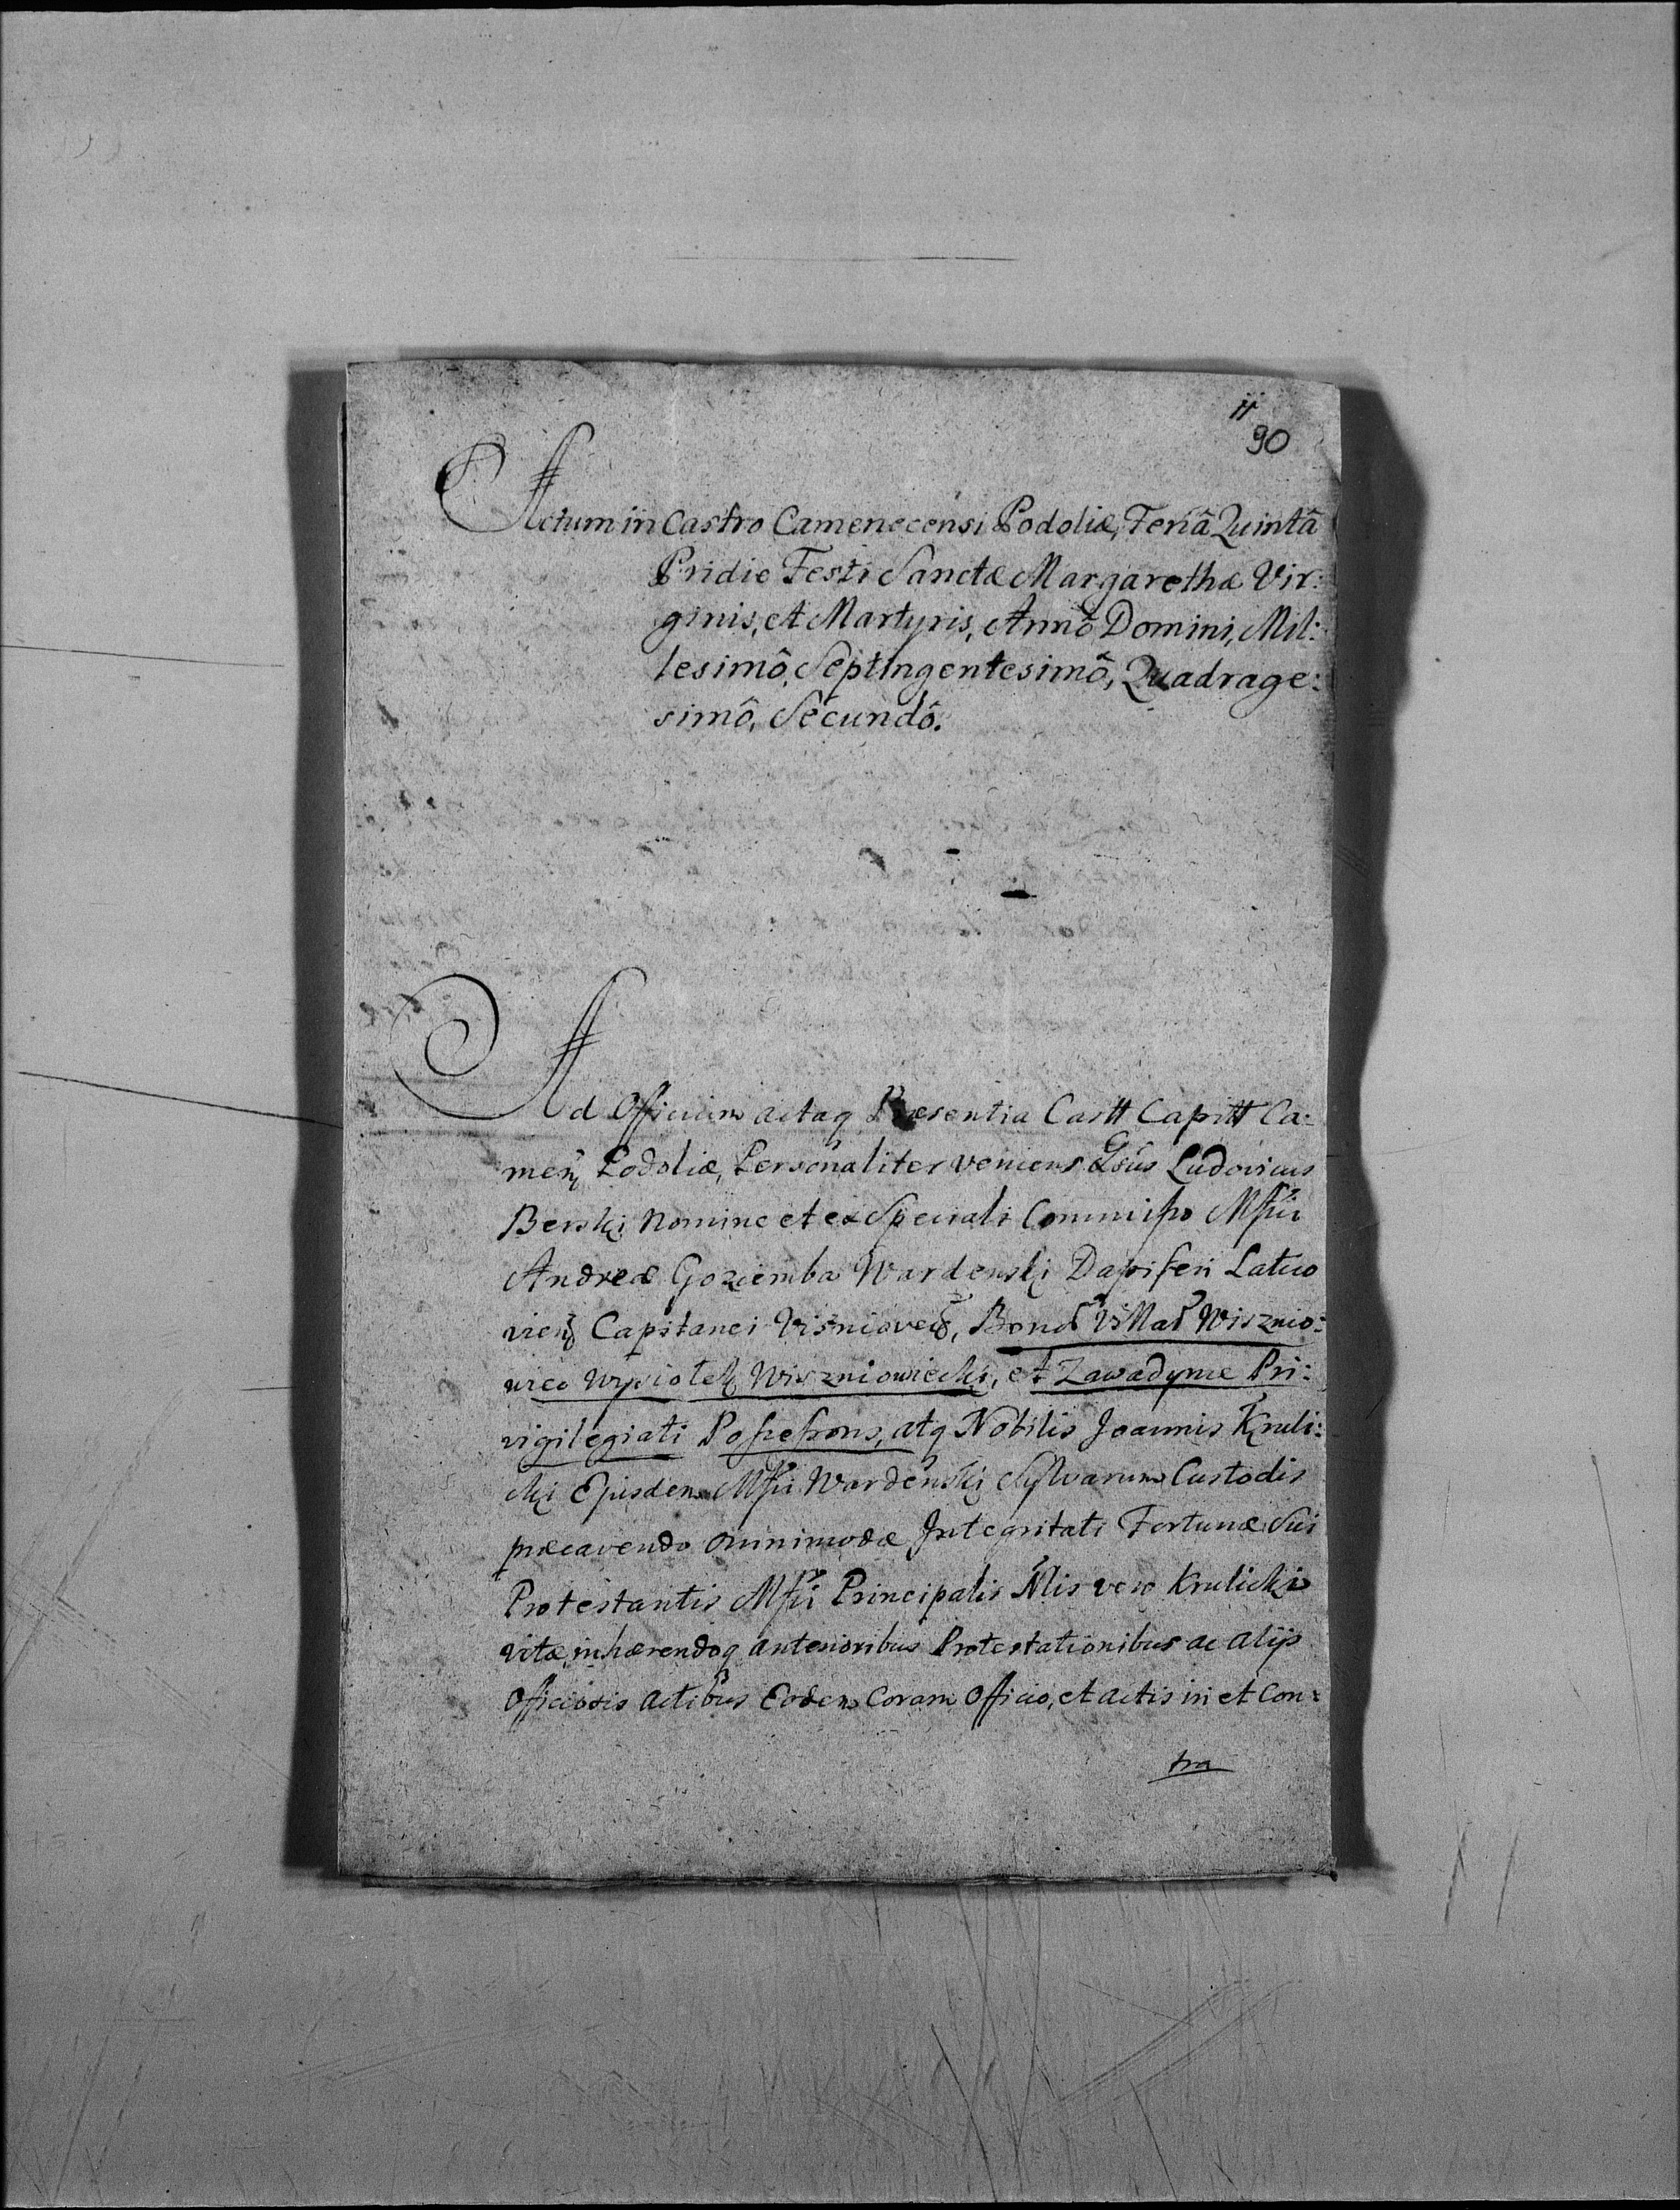 11
90
Actum in Castro Camenecensi Podoliæ, Feriâ Quintâ
Pridie Festi Sanctæ Margarethæ Vir:
ginis, et Martyris, Annô Domini, Mil:
lesimô, Septingentesimô, Quadrage:
simô, Secundô.
Ad Officium actaq Præsentia Castt Capitt Ca:
men Podoliæ, Personaliter veniens Gsus Ludovicus
Berski Nomine et ex Speciali Commisso Mfci
Andreæ Goziemba Wardenski Dapiferi Latico
vien Capitanei Viśniovec, Bonor Villar Wisznio:
wiec Wysiolek Wiszniowiecki, et Zawadynie Pri:
vigilegiati Possessoris, atq Nobilis Joannis Kruli:
cki Ejusdem Mfci Wardenski Sylvarum Custodis
præcavendo omnimodæ Integritati Fortunæ Sui
Protestantis Mfci Principalis Nlis vero Krulicki
vitæ, inhærendoq anterioribus Protestationibus ac alijs
Officiosis actibus Eodem Coram Officio, et actis in et Con:
tra